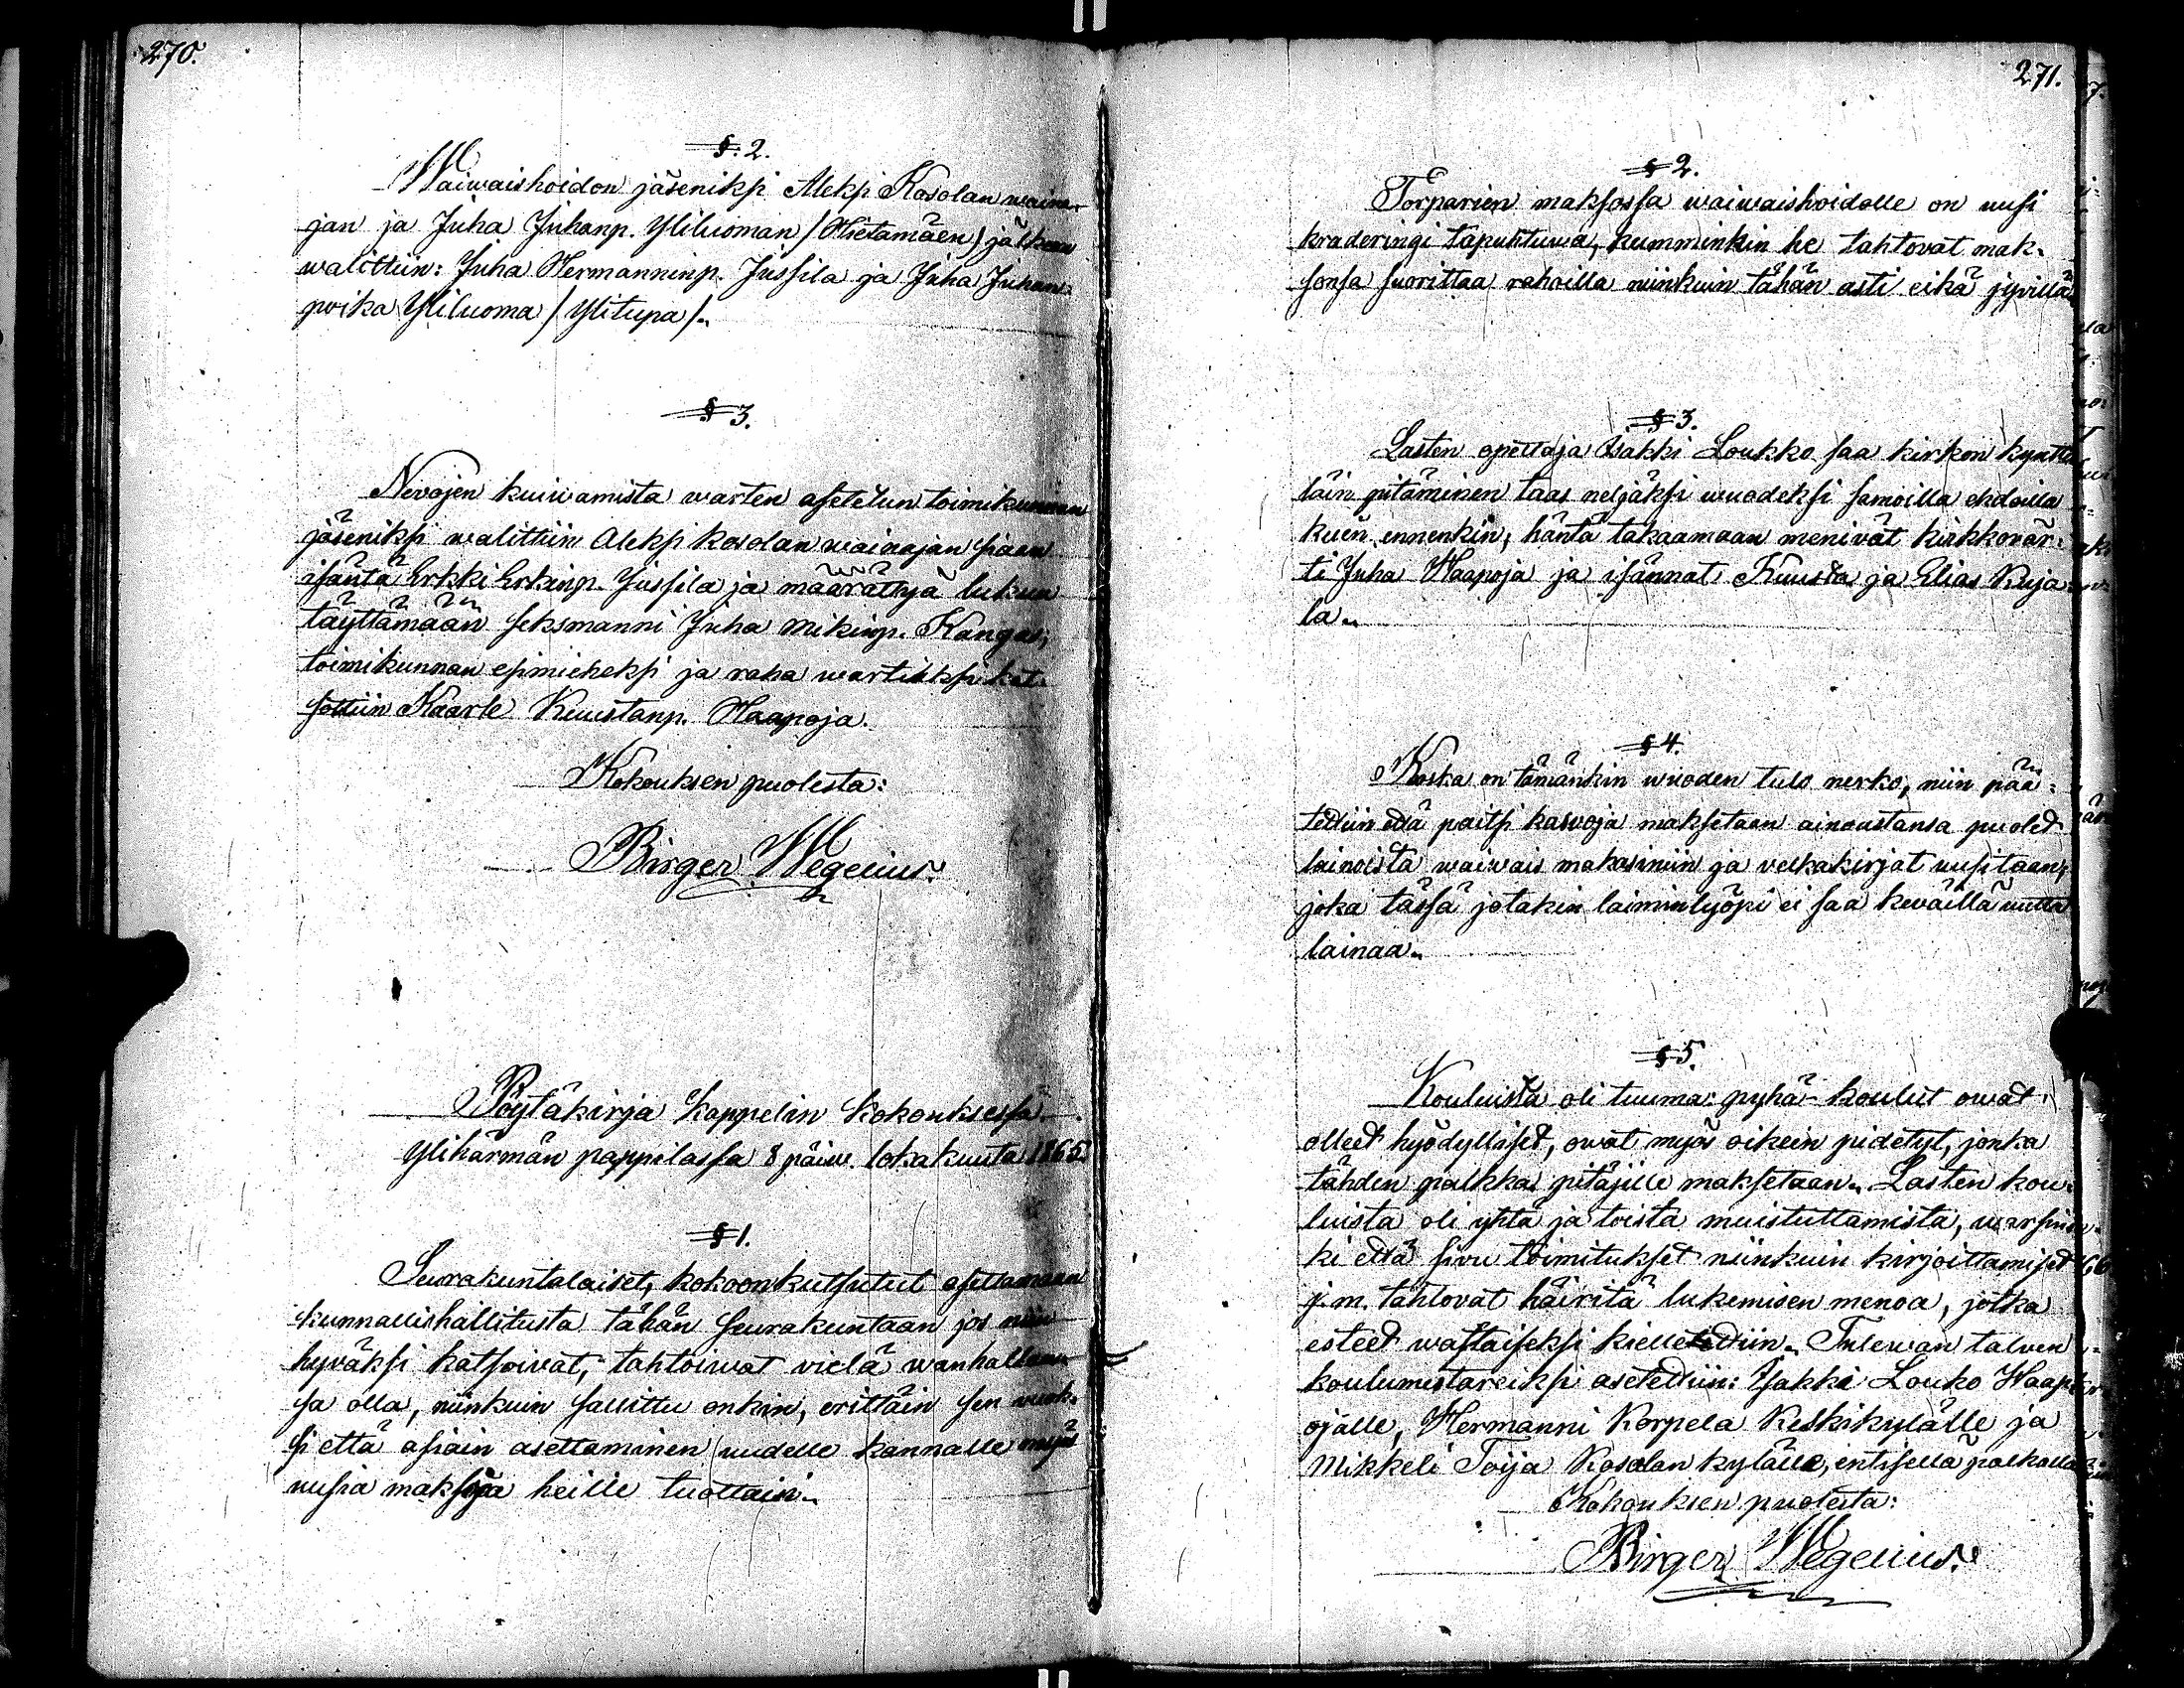 270.
§. 2.
Waiwaishoidon jäseniksi Aleksi Kosolan waina-
jan ja Juha Juhanp. Yliluoman /Hietamäen/ jälkeen
walittiin: Juha Hermanninp. Jussila ja Juha Juhan-
poika Yliluoma /Ylitupa/.
§ 3.
Nevojen kuiwamista warten asetetun toimikunnan
jäseniksi walittiin Aleksi Kosolan wainajan siaan
isäntä Erkki Erkinp. Jussila ja määrättyä lukua
täyttämään seksmanni Juha Mikinp. Kangas;
toimikunnan esimieheksi ja raha wartiaksi kat-
sottiin Kaarle Kuustanp. Haapoja.
Kokouksen puolesta:
Birger Wegelius.
Pöytäkirja Kappelin Kokouksessa
Ylihärmän pappilassa 8 päiw. lokakuuta 1865.
§ 1.
Seurakuntalaiset, kokoonkutsutut asettamaan
kunnallishallitusta tähän seurakuntaan jos niin
hyväksi katsoivat, tahtoiwat vielä wanhallaan-
sa olla, niinkuin sallittu onkin, erittäin sen wuok-
si että asiain asettaminen uudelle kannalle myös
uusia maksoja heille tuottaisi.
271.
§ 2.
Torparien maksossa waiwaishoidolle on uusi
kraderingi tapahtuwa, kumminkin he tahtovat mak-
sonsa suorittaa rahoilla niinkuin tähän asti eikä jyvillä
§ 3.
Lasten opettaja Isakki Loukko saa kirkon kyntti-
läin pitäminen taas neljäksi wuodeksi samoilla ehdoilla
kuin ennenkin, häntä takaamaan menivät kirkkovär-
ti Juha Haapoja ja isännät Kuusta ja Elias Kuja-
la.
§ 4.
Koska on tämänkin wuoden tulo nerko, niin pää-
tettiin että paitsi kaswoja maksetaan ainoastansa puolet
lainoista waiwais makasiniin ja velkakirjat uusitaan,
joka tässä jotakin laiminlyöpi ei saa keväillä uutta
lainaa.
§ 5.
Kouluista oli tuuma: pyhä-koulut owat
olleet hyödylliset, owat myös oikein pidetyt, jonka
tähden palkka pitäjille maksetaan. Lasten kou-
luista oli yhtä ja toista muistuttamista, warsin-
ki että sivu toimitukset niinkuin kirjoittamiset
j.m. tahtovat häiritä lukemisen menoa, jotka
esteet wastaiseksi kiellettiin. Tulewan talven
koulumestareiksi asetettiin: Isakki Louko Haap-
ojalle, Hermanni Korpela Keskikylälle ja
Mikkeli Toija Kosolan kylälle, entisellä palkalla
Kokouksen puolesta:
Birger Wegelius.